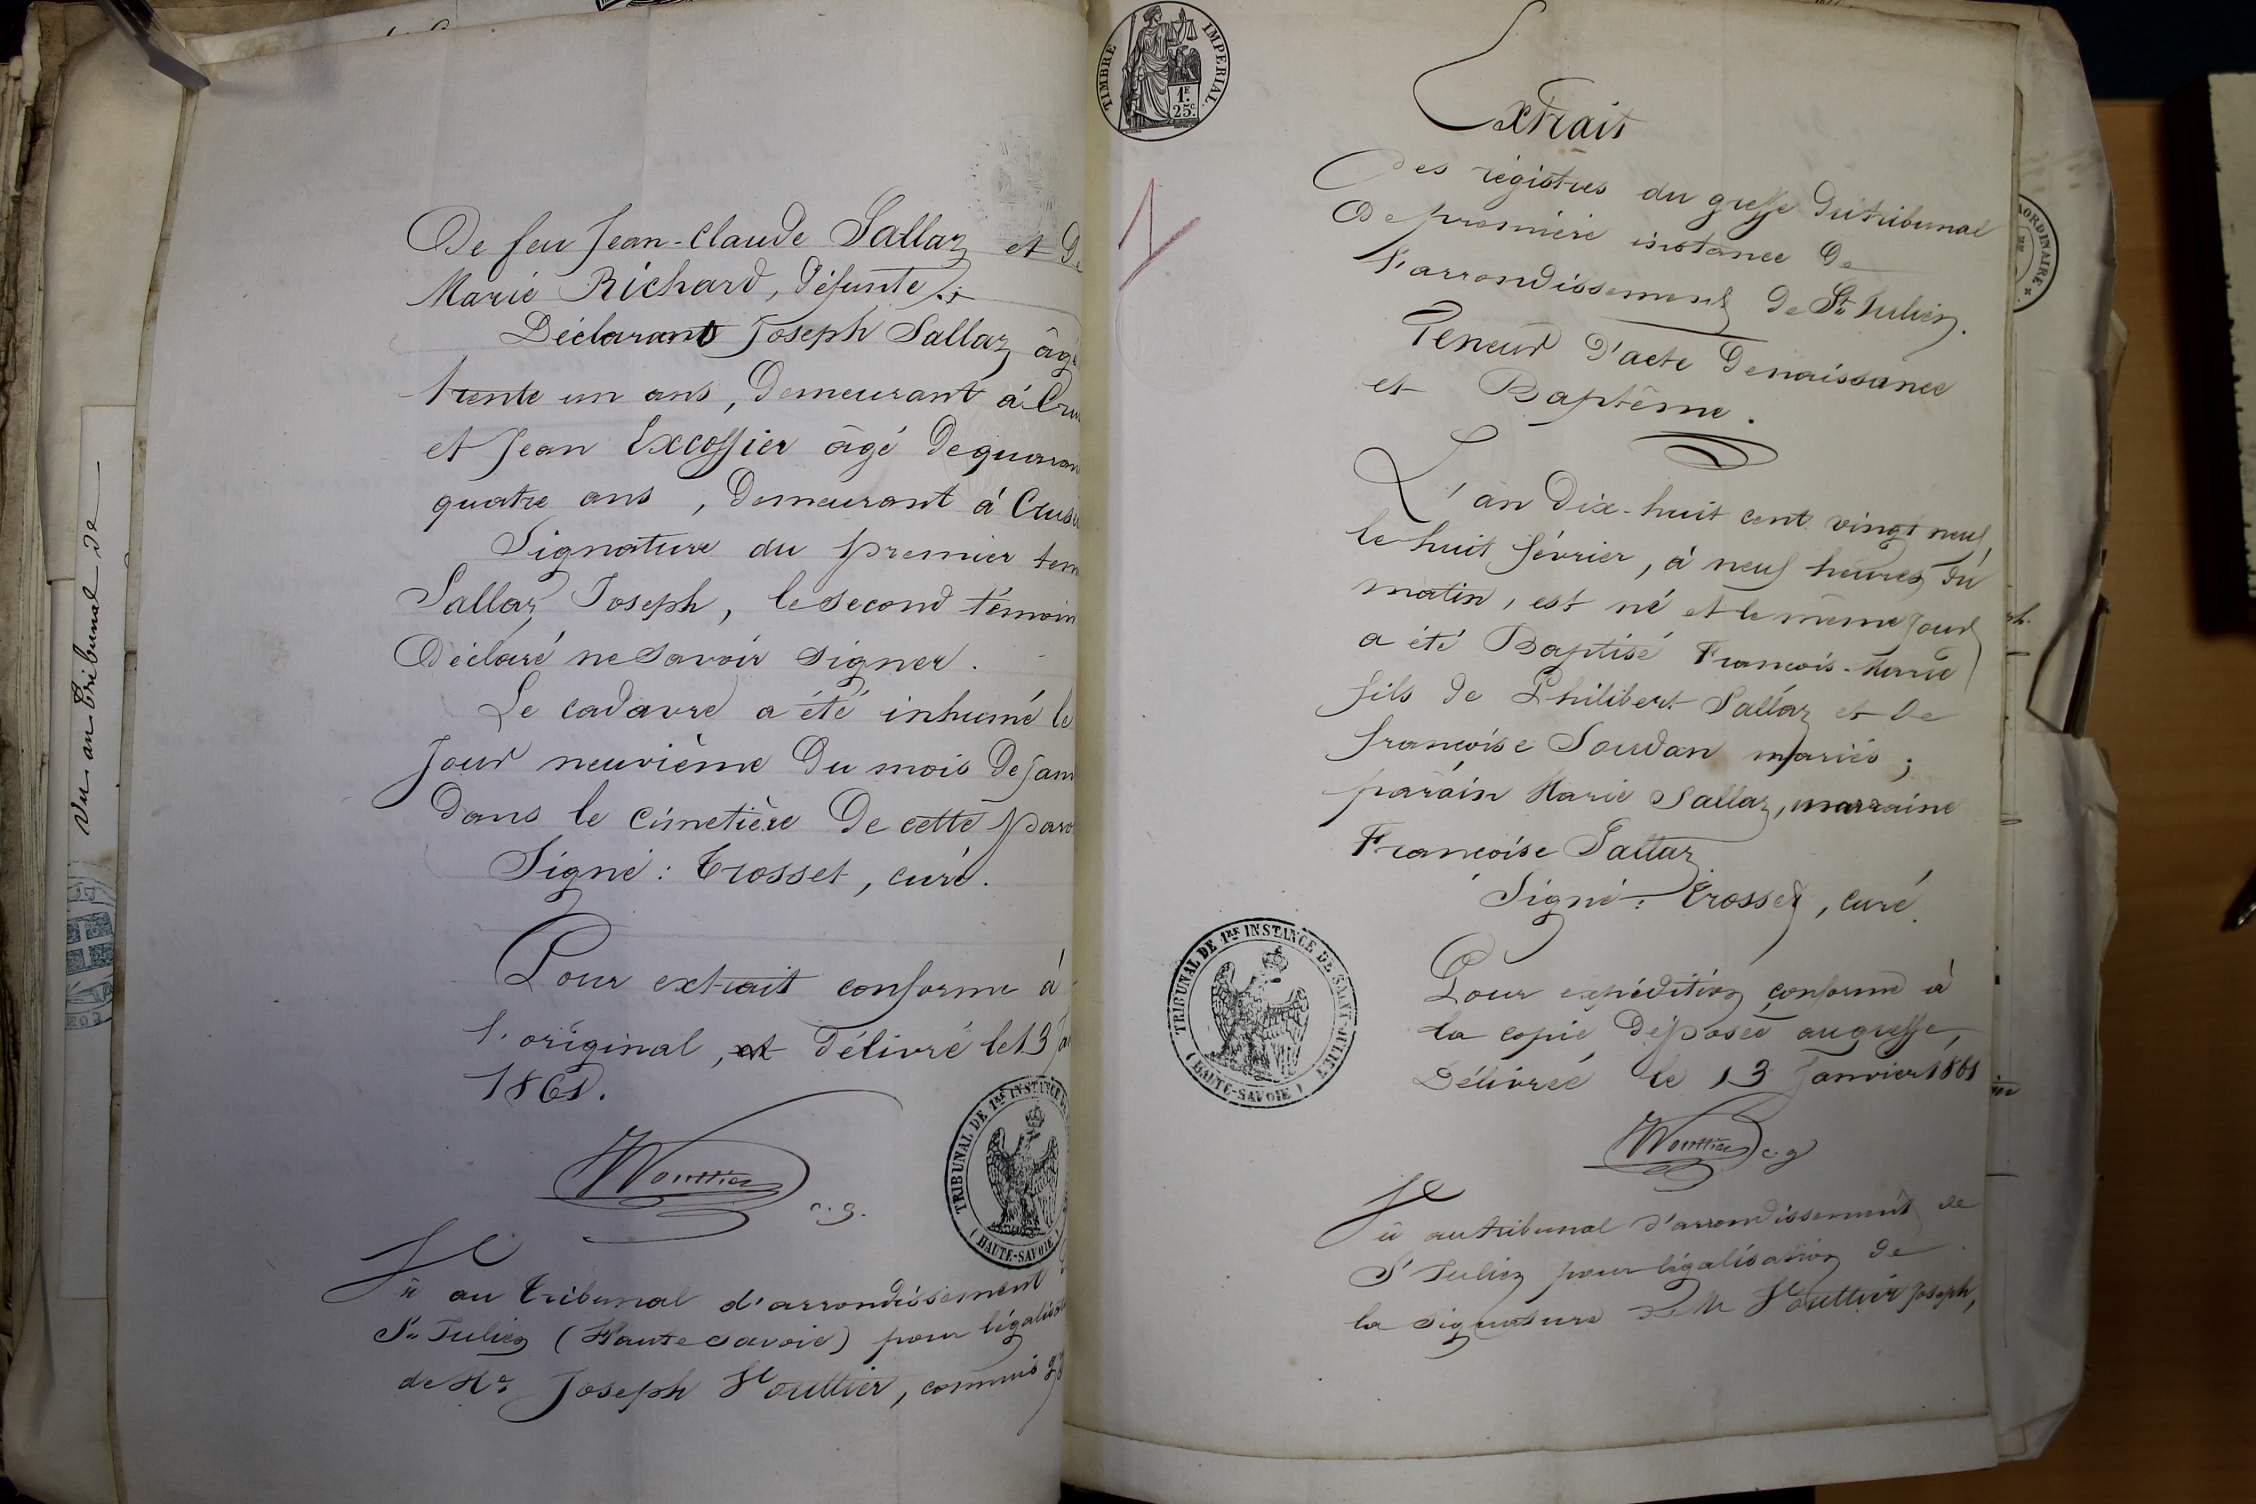 De feu Jean-Claude Sallaz et De
Marie Richard, Défunte.
Déclarant Joseph Sallaz âgé
trente un ans, Demeurant à Cru
et Jean Excoffier âgé De quaran
quatre ans, Demeurant à Crus
Signature du premier tem
Sallaz Joseph, le second témoin
Déclaré ne savoir signer.
Le cadavre a été inhumé le
Jour neuvième Du mois De Jan
Dans le cimetière De cette paro
Signé: Trosset, curé.
Pour extrait conforme à
l'original, et Délivré le 13 Ja
1861.
Vouttier
c.g.
TRIBUNAL DE 1RE INSTANCE DE
(HAUTE-SAVOIE)
Vu au Tribunal d'arrondissement
St Julien (Haute Savoie) pour légalis
de Mr Joseph Vouttier, commis
Vu au Tribunal de
TIMBRE IMPERIAL
1F 25c
1
Extrait
Des régistres du greffe Du tribunal
De première instance De
l'arrondissement De St Julien.
Teneur D'acte De naissance
et Baptême.
L'an Dix-huit cent vingt neuf
le huit février, à neuf heures Du
matin, est né et le même Jour
a été Baptisé François-Marie
fils De Philibert Sallaz et De
françoise Soudan mariés;
parain Marie Sallaz, marraine
Françoise Sallaz
Signé: Trosset, curé.
Pour expédition conforme à
la copie Déposée au greffe,
Délivrée le 13 Janvier 1861
Vouttier c.g
TRIBUNAL DE 1RE INSTANCE DE SAINT-JULIEN
(HAUTE-SAVOIE)
Vu au tribunal d'arrondissement de
St Julien pour légalisation De
la signature De Mr Vouttier Joseph,
AORDINAIRE